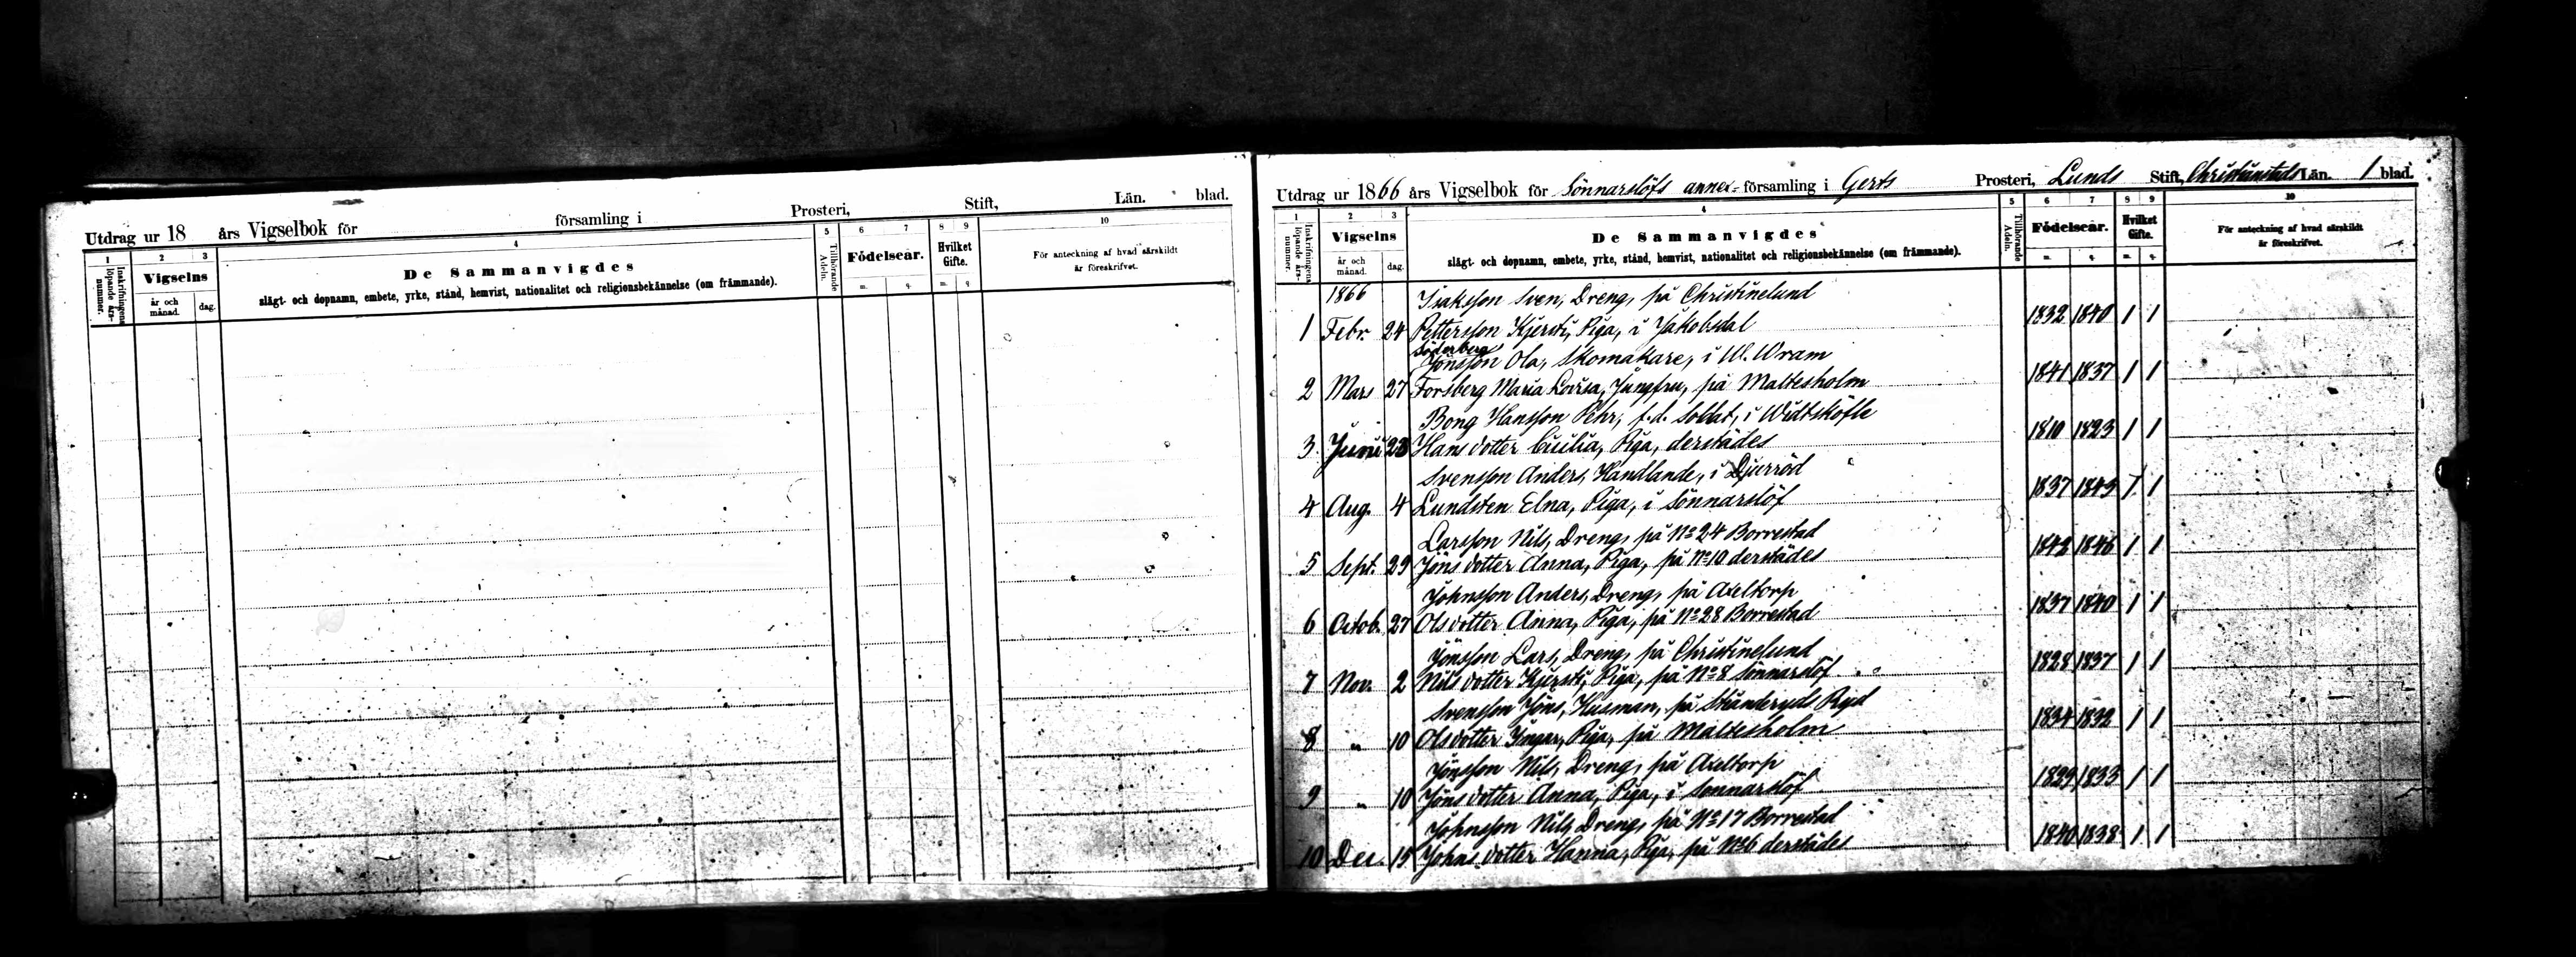 Utdrag ur 18 års Vigselbok för församling i Prosteri, Stift, Län. blad.
1 2 3 4 5 6 7 8 9 10
Inskrifningens löpande års-nummer.
Vigselns
år och månad. dag.
De Sammanvigdes
slägt- och dopnamn, embete, yrke, stånd, hemvist, nationalitet och religionsbekännelse (om främmande).
Tillhörande Adeln.
Födelseår.
m. q.
Hvilket Gifte.
m. q.
För anteckning af hvad särskildt är föreskrifvet.
Utdrag ur 1866 års Vigselbok för Sönnarslöfs annex-församling i Gerts Prosteri, Lunds Stift, Christianstads Län. 1 blad.
1 2 3 4 5 6 7 8 9 10
Inskrifningens löpande års-nummer.
Vigselns
år och månad. dag.
De Sammanvigdes
slägt- och dopnamn, embete, yrke, stånd, hemvist, nationalitet och religionsbekännelse (om främmande).
Tillhörande Adeln.
Födelseår.
m. q.
Hvilket Gifte.
m. q.
För anteckning af hvad särskildt är föreskrifvet.
1866 Isaksson Sven, Dreng, på Christinelund
1 Febr. 24 Pettersson Kjersti, Piga, i Jakobsdal 1832 1840 1 1
Söderberg
Jönsson Ola, Skomakare, i W. Wram
2 Mars 27 Forsberg Maria Lovisa, Jungfru, på Maltesholm 1841 1837 1 1
Bong Hansson Pehr, f.d. Soldat, i Widtsköfle
3 Juni 23 Hans dotter Cecilia, Piga, derstädes 1810 1823 1 1
Svensson Anders, Handlande, i Djurröd
4 Aug. 4 Lundsten Elna, Piga, i Sönnarslöf 1837 1843 1 1
Larsson Nils, Dreng, på No 24 Borrestad
5 Sept. 29 Jöns dotter Anna, Piga, på No 10 derstädes 1842 1846 1 1
Johnsson Anders, Dreng, på Axeltorp
6 Octob. 27 Ols dotter Anna, Piga, på No 28 Borrestad 1837 1840 1 1
Jönsson Lars, Dreng, på Christinelund
7 Nov. 2 Nils dotter Kjersti, Piga, på No 8 Sönnarslöf 1828 1837 1 1
Svensson Jöns, Husman, på Ryd
8 " 10 Ols dotter Ingar, Piga, på Maltesholm 1834 1832 1 1
Jönsson Nils, Dreng, på Axeltorp
9 " 10 Jöns dotter Anna, Piga, i Sönnarslöf 1829 1833 1 1
Johnsson Nils, Dreng, på No 17 Borrestad
10 Dec. 15 Johns dotter Hanna, Piga, på No 6 derstädes 1840 1838 1 1